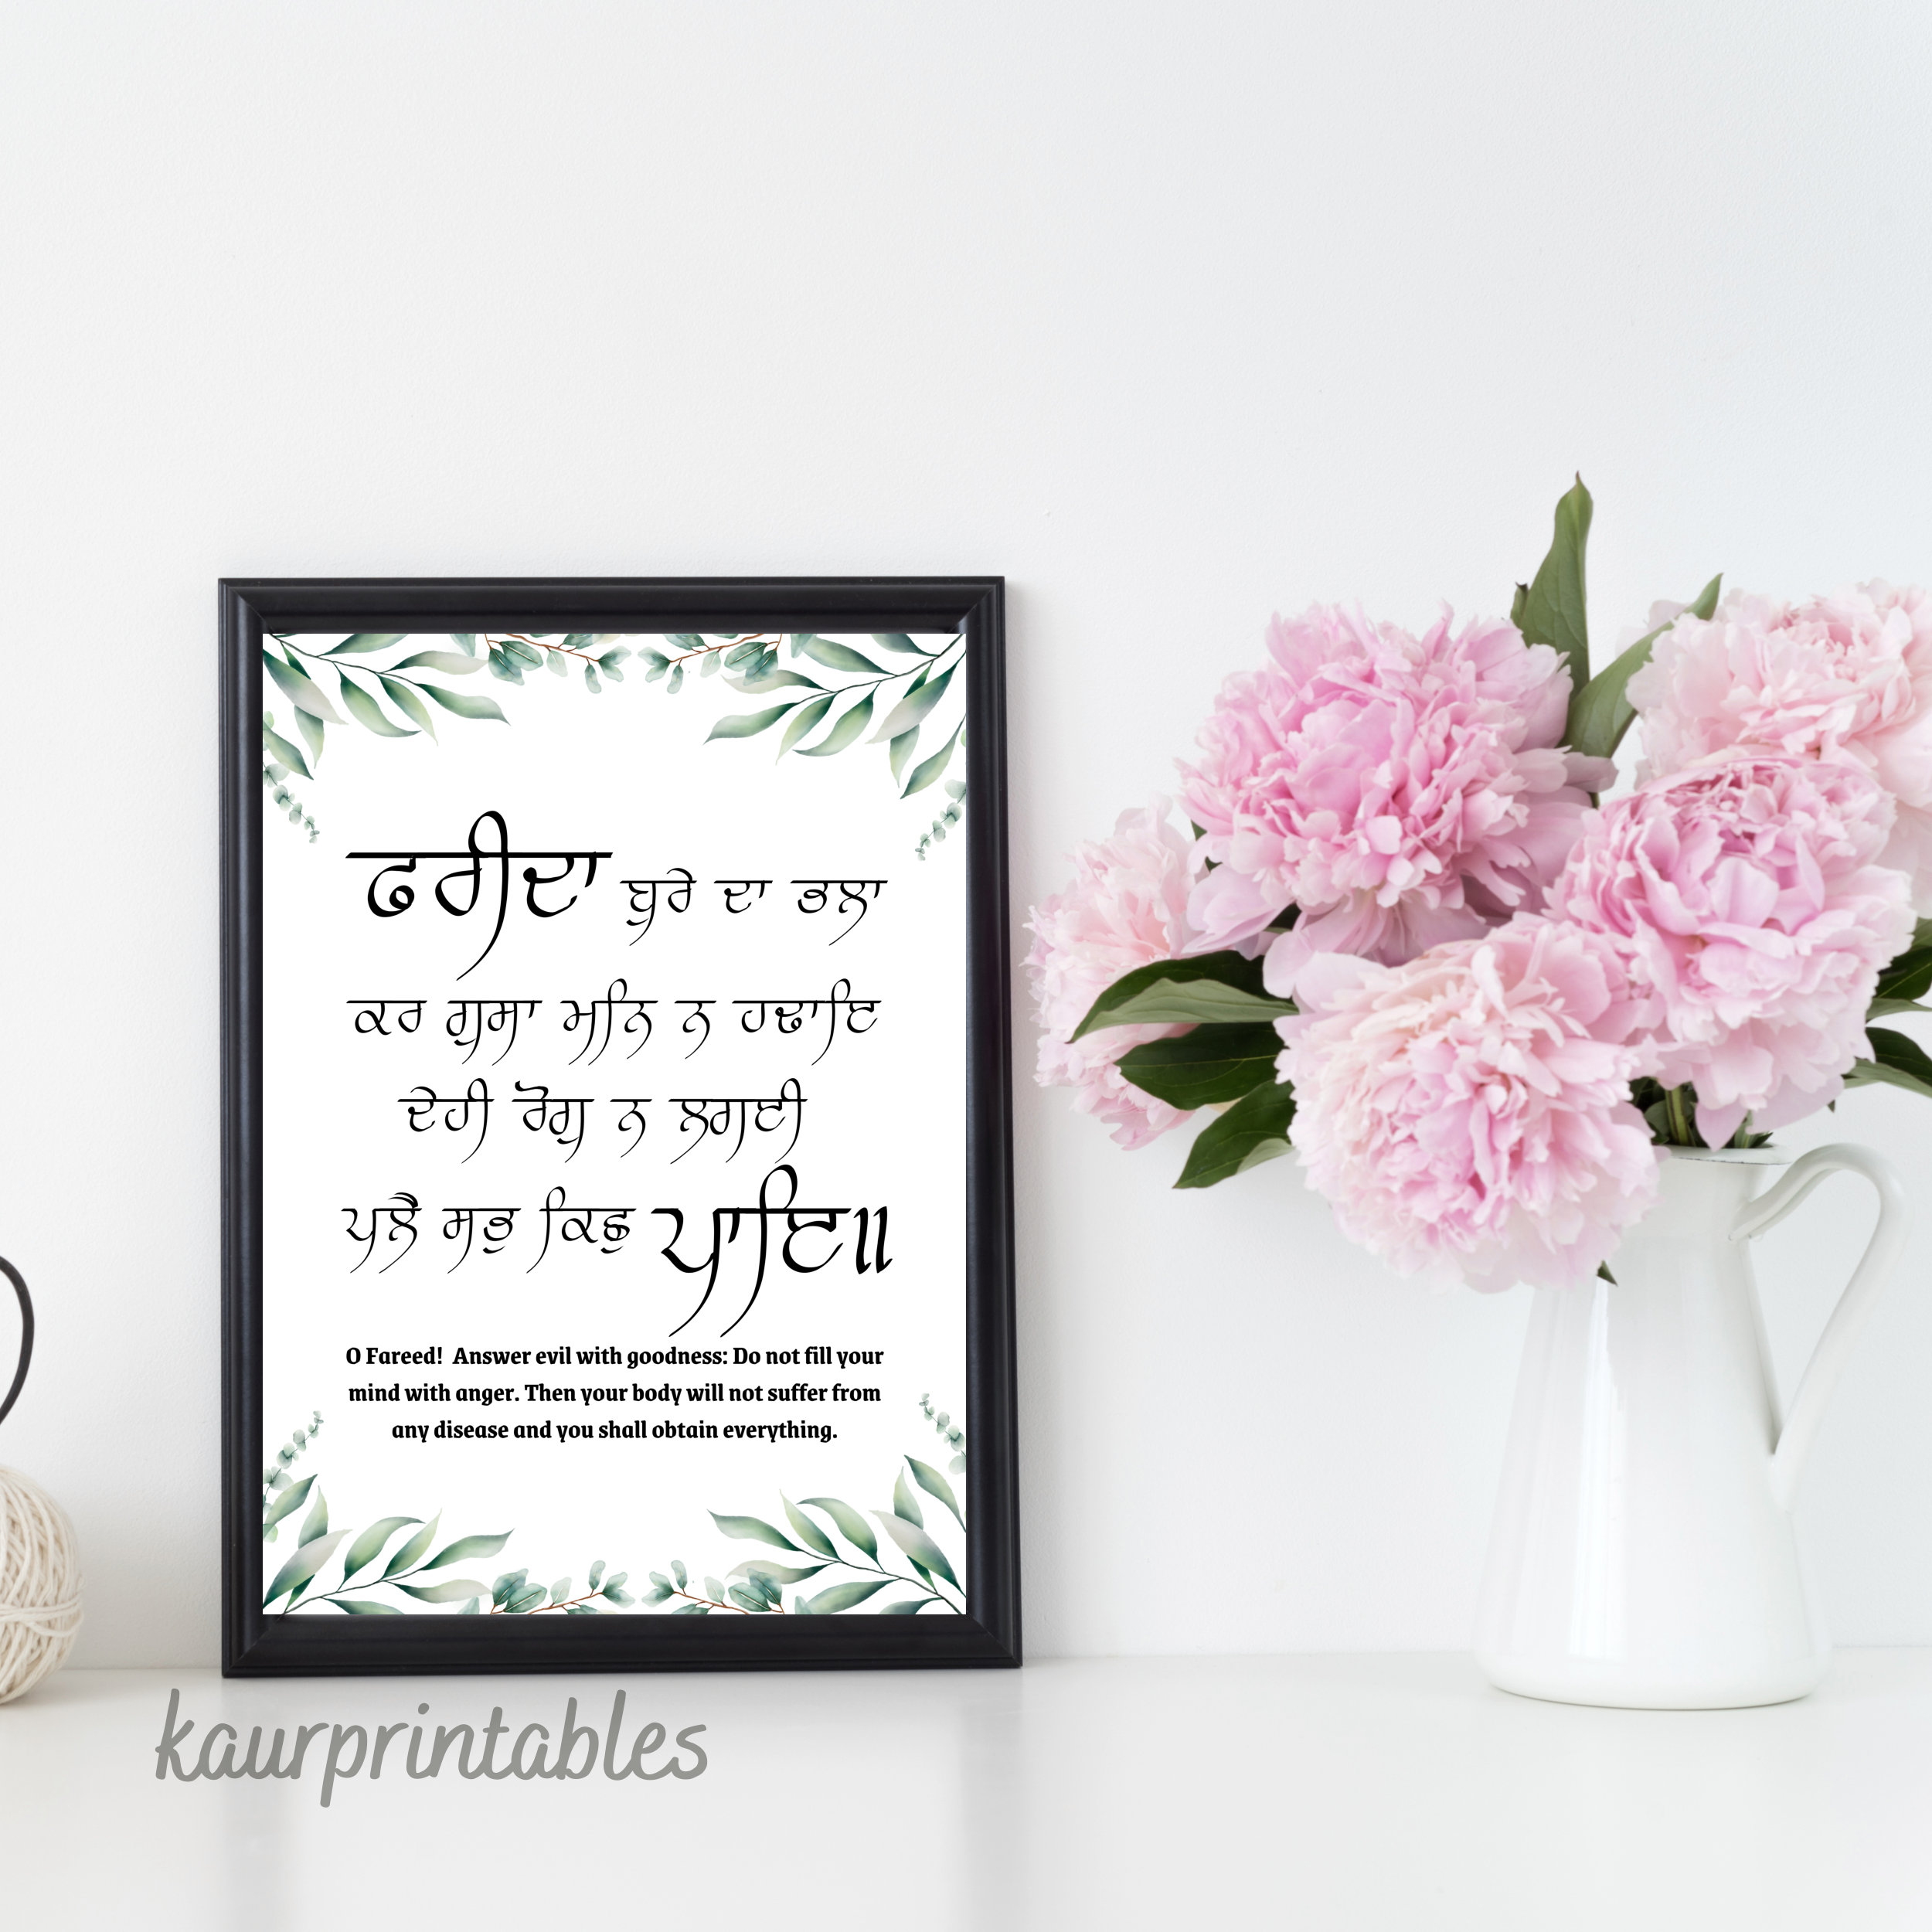 ਫਰੀਦਾ ਬੁਰੇ ਦਾ ਭਲਾ
ਕਰ ਗੁਸਾ ਮਨਿ ਨ ਹਢਾਇ
ਦੇਹੀ ਰੋਗੁ ਨ ਲਗਈ
ਪਲੈ ਸਭੁ ਕਿਛੁ ਪਾਇ॥
O Fareed! Answer evil with goodness: Do not fill your
mind with anger. Then your body will not suffer from
any disease and you shall obtain everything.
kaurprintables